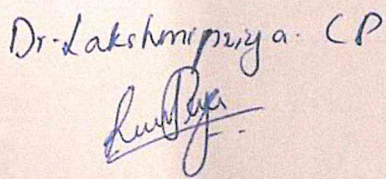 Dr. Lakshmipriya. CP